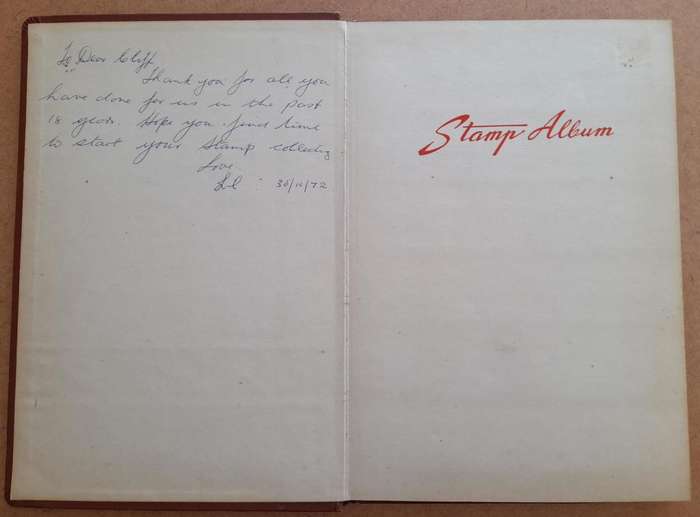 To Dear Cliff
Thank you for all you
have done for us in the past
18 years. Hope you find time
to start your Stamp collecting
Love
30/12/72
Stamp Album